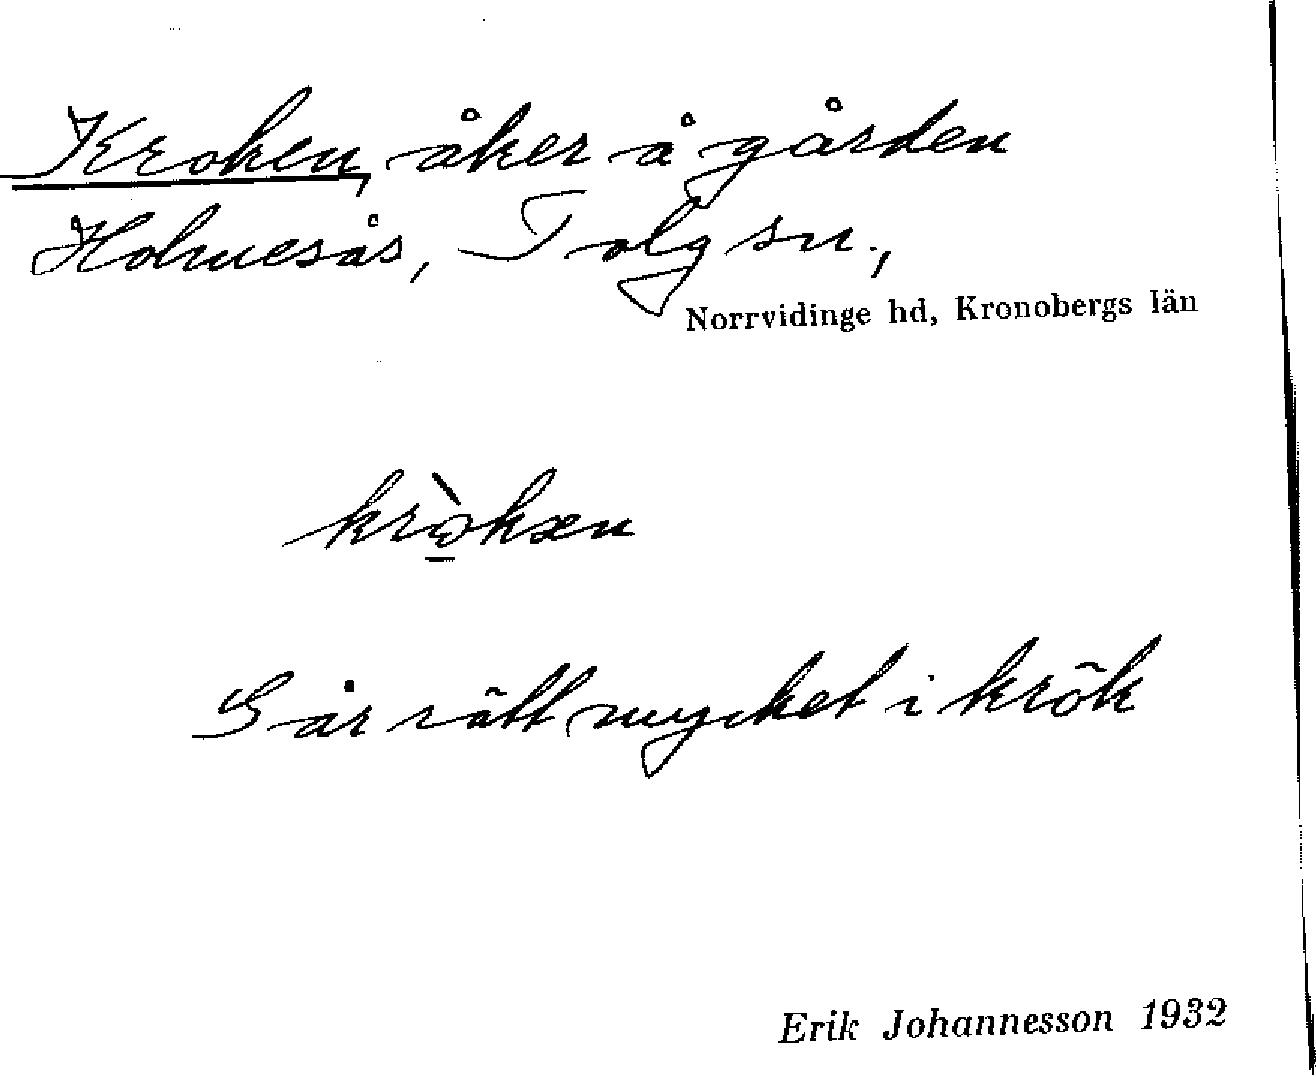 Kroken, åker å gården
Holmesås, Tolg sn.,
Norrvidinge hd, Kronobergs län
krò̲kæn
Går rätt mycket i krök
Erik Johannesson 1932